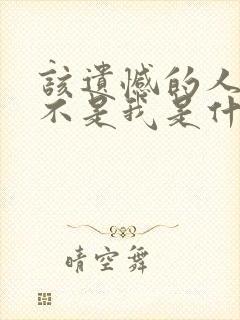 該遺憾的人
不是我是什
晴空舞